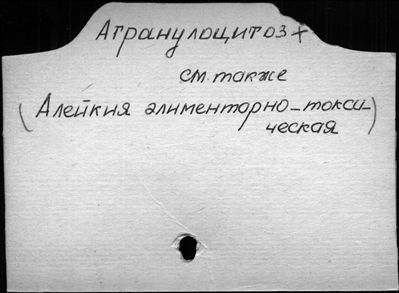 Агранулоцитоз +
см. также
(Алейкия алименторно-токси-
ческая)